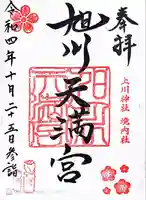 奉拝
上川神社 境内社
旭川天満宮
令和四年十月二十五日参詣